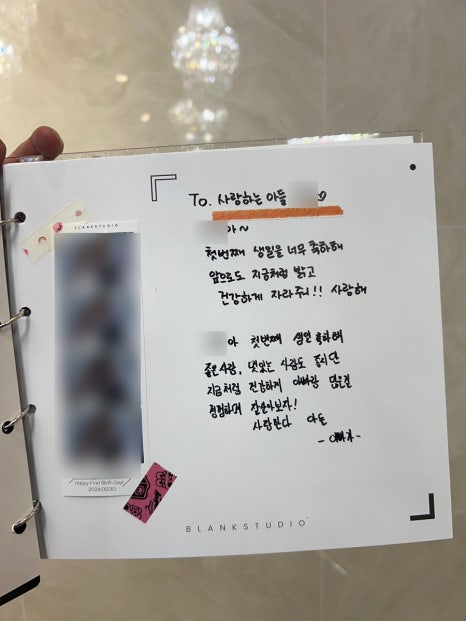 BLANKSTUDIO
To. 사랑하는 아들 ♡
아~
첫번째 생일을 너무 축하해
앞으로도 지금처럼 밝고
건강하게 자라주니!! 사랑해
아 첫번째 생일 축하해
좋은사람, 멋있는 사람도 좋지만
지금처럼 건강하게 아빠랑 많은걸
경험하며 잘살아보자!
사랑한다 아들
-아빠가-
Happy First Birth Day!
BLANKSTUDIO